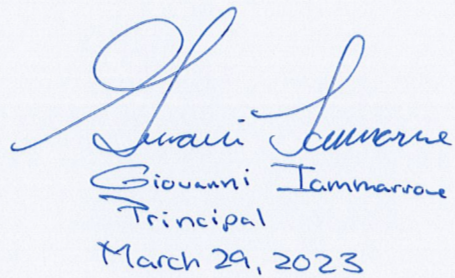 Giovanni Iammarrone
Giovanni Iammarrone
Principal
March 29, 2023